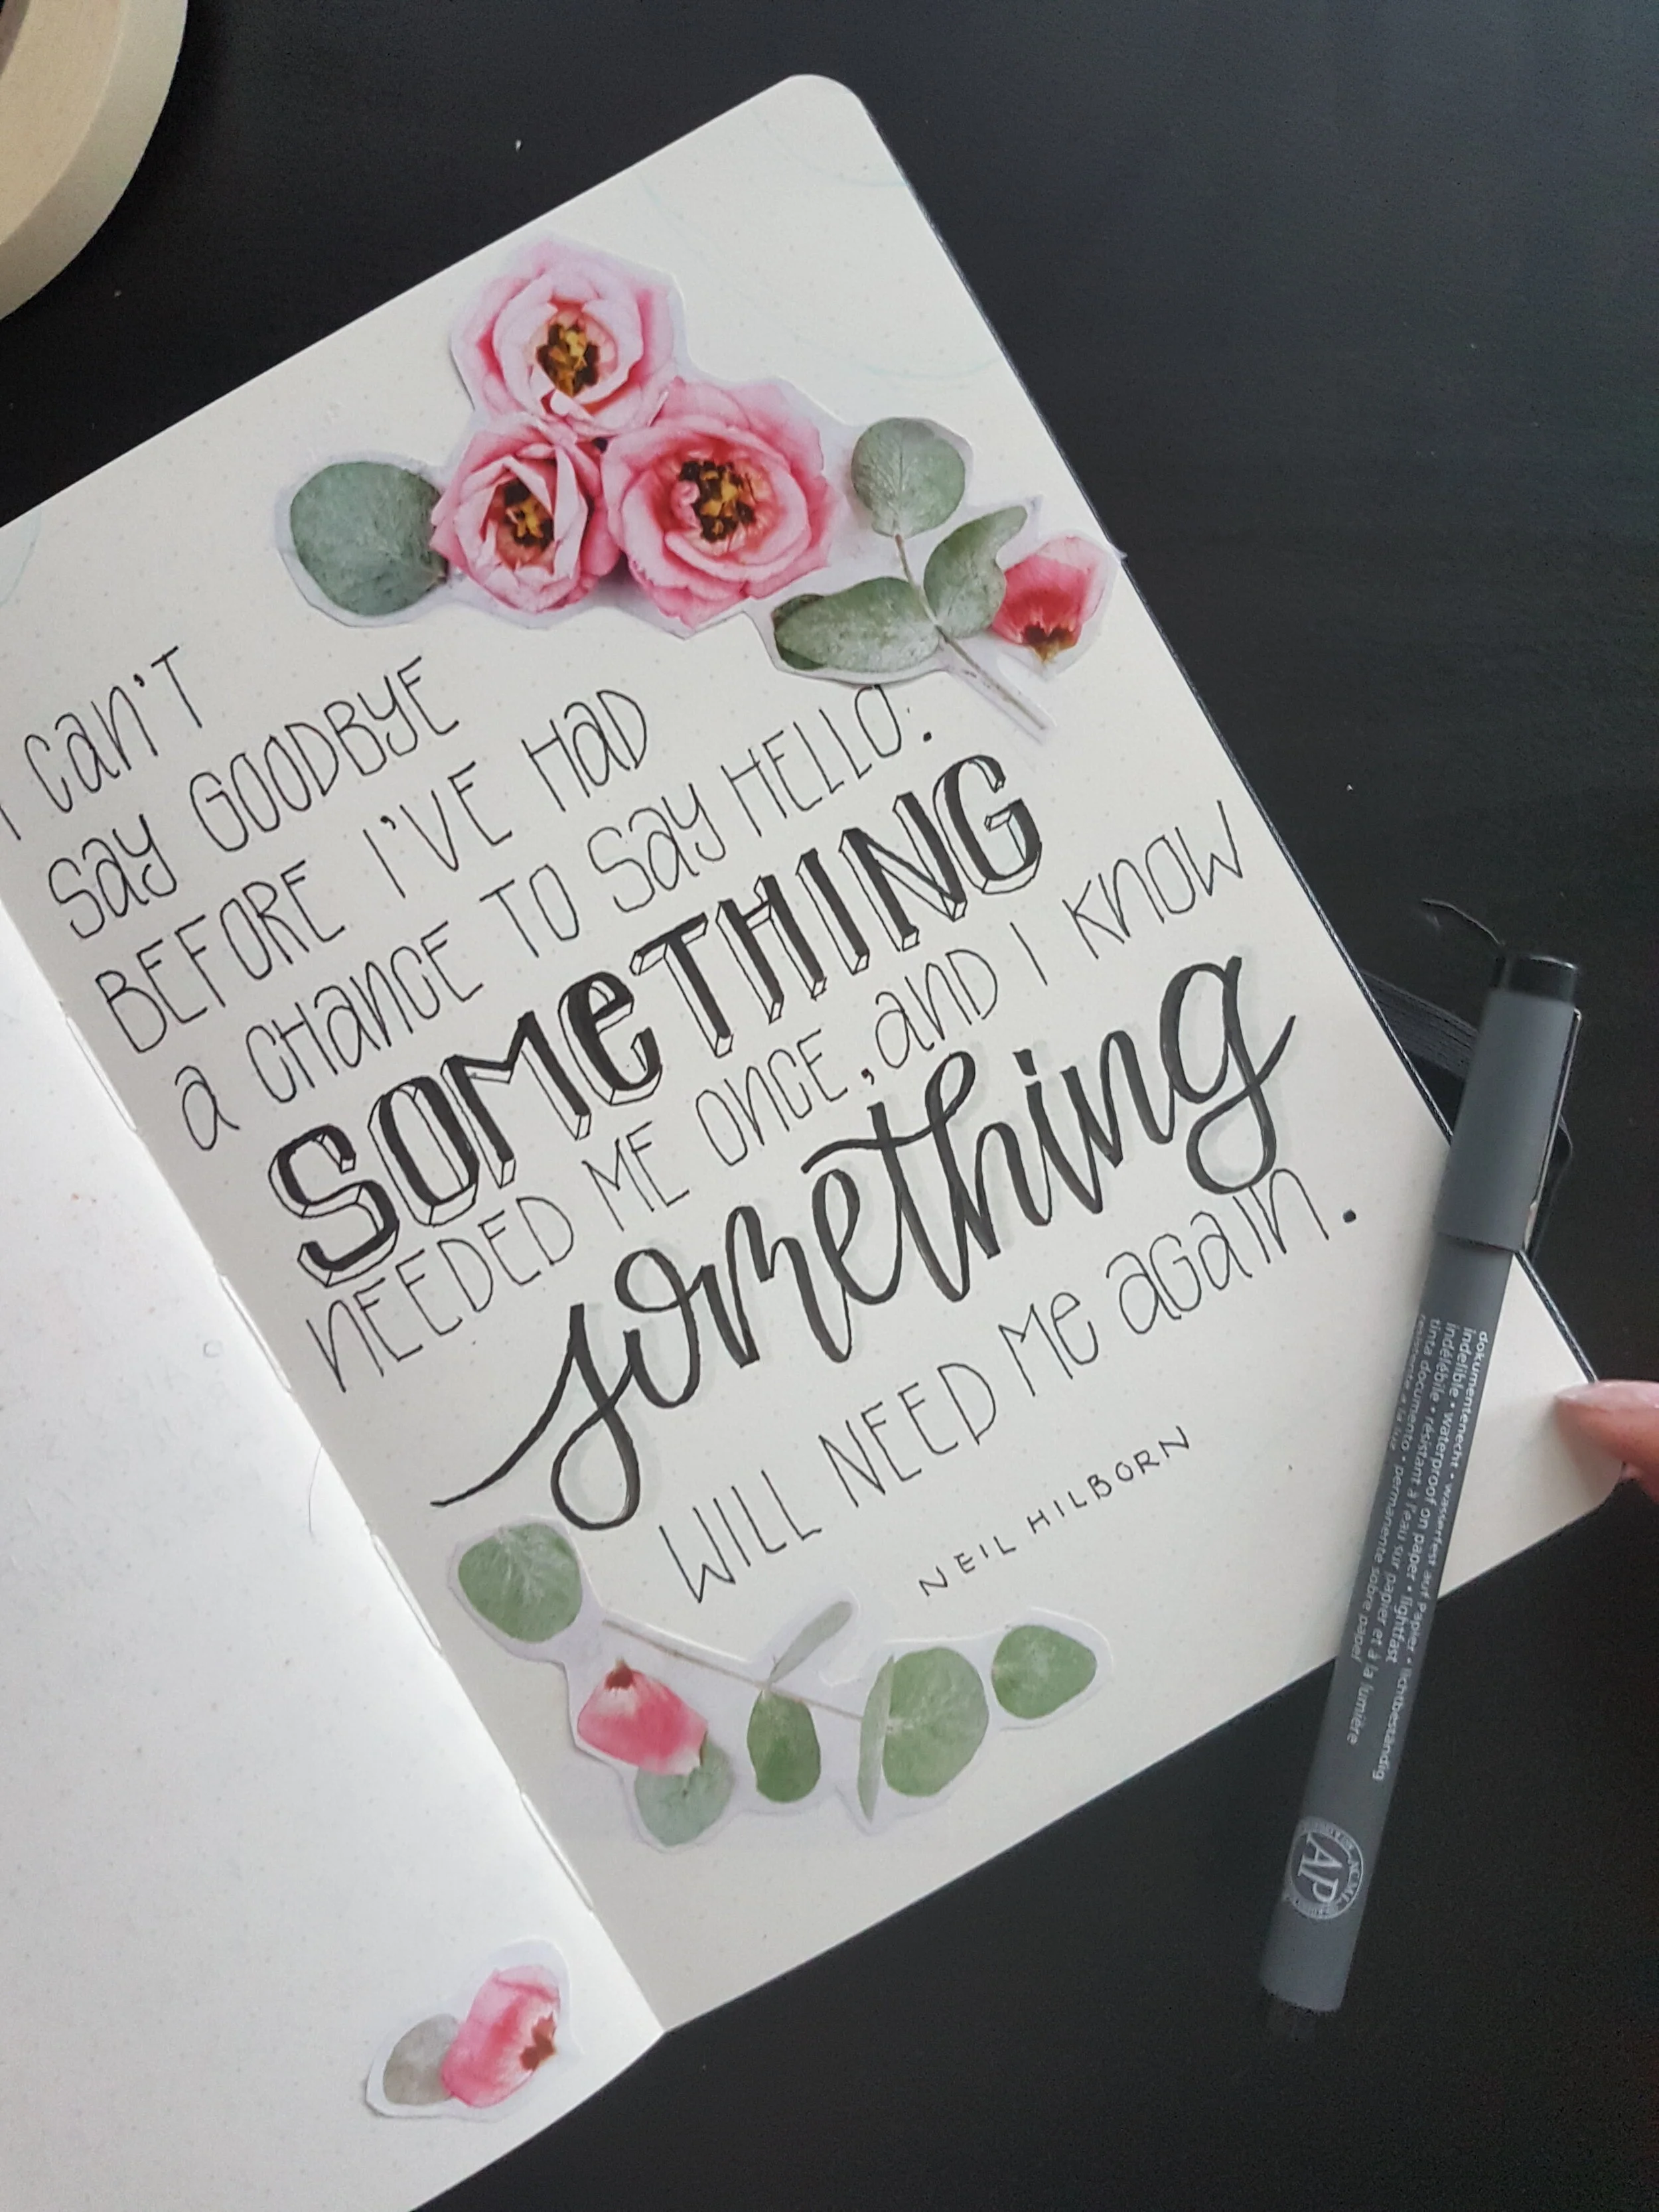 I can't
say goodbye
before I've had
a chance to say hello:
SOMeTHING
needed me once, and I know
something
will need me again.
NEIL HILBORN
dokumentenecht • wasserfest auf papier • lichtbeständig
indelible • waterproof on paper • lightfast
indélébile • résistant à l'eau sur papier et à la lumière
tinta documento • permanente sobre papel
AP